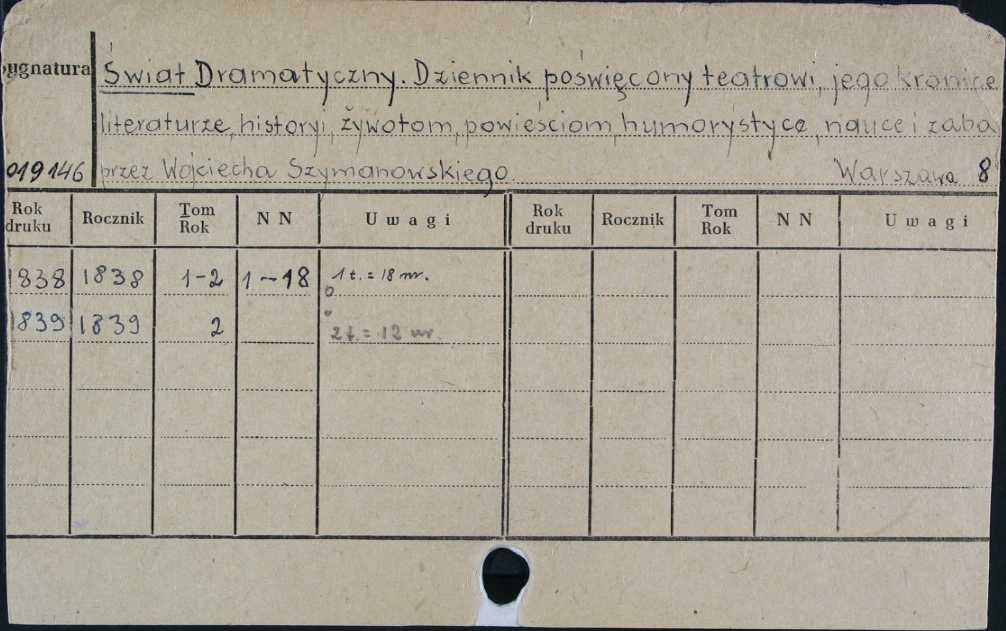 ygnatura Świat Dramatyczny. Dziennik poświęcony teatrowi, jego kronice
literaturze, historyi, żywotom, powieściom, humorystyce, nauce i zaba
019146 przez Wojciecha Szymanowskiego. Warszawa 8
Rok druku Rocznik Tom Rok N N Uwagi Rok druku Rocznik Tom Rok N N Uwagi
1838 1838 1-2 1-18 1 t. = 18 nr.
1839 1839 2 2 t. = 12 nr.